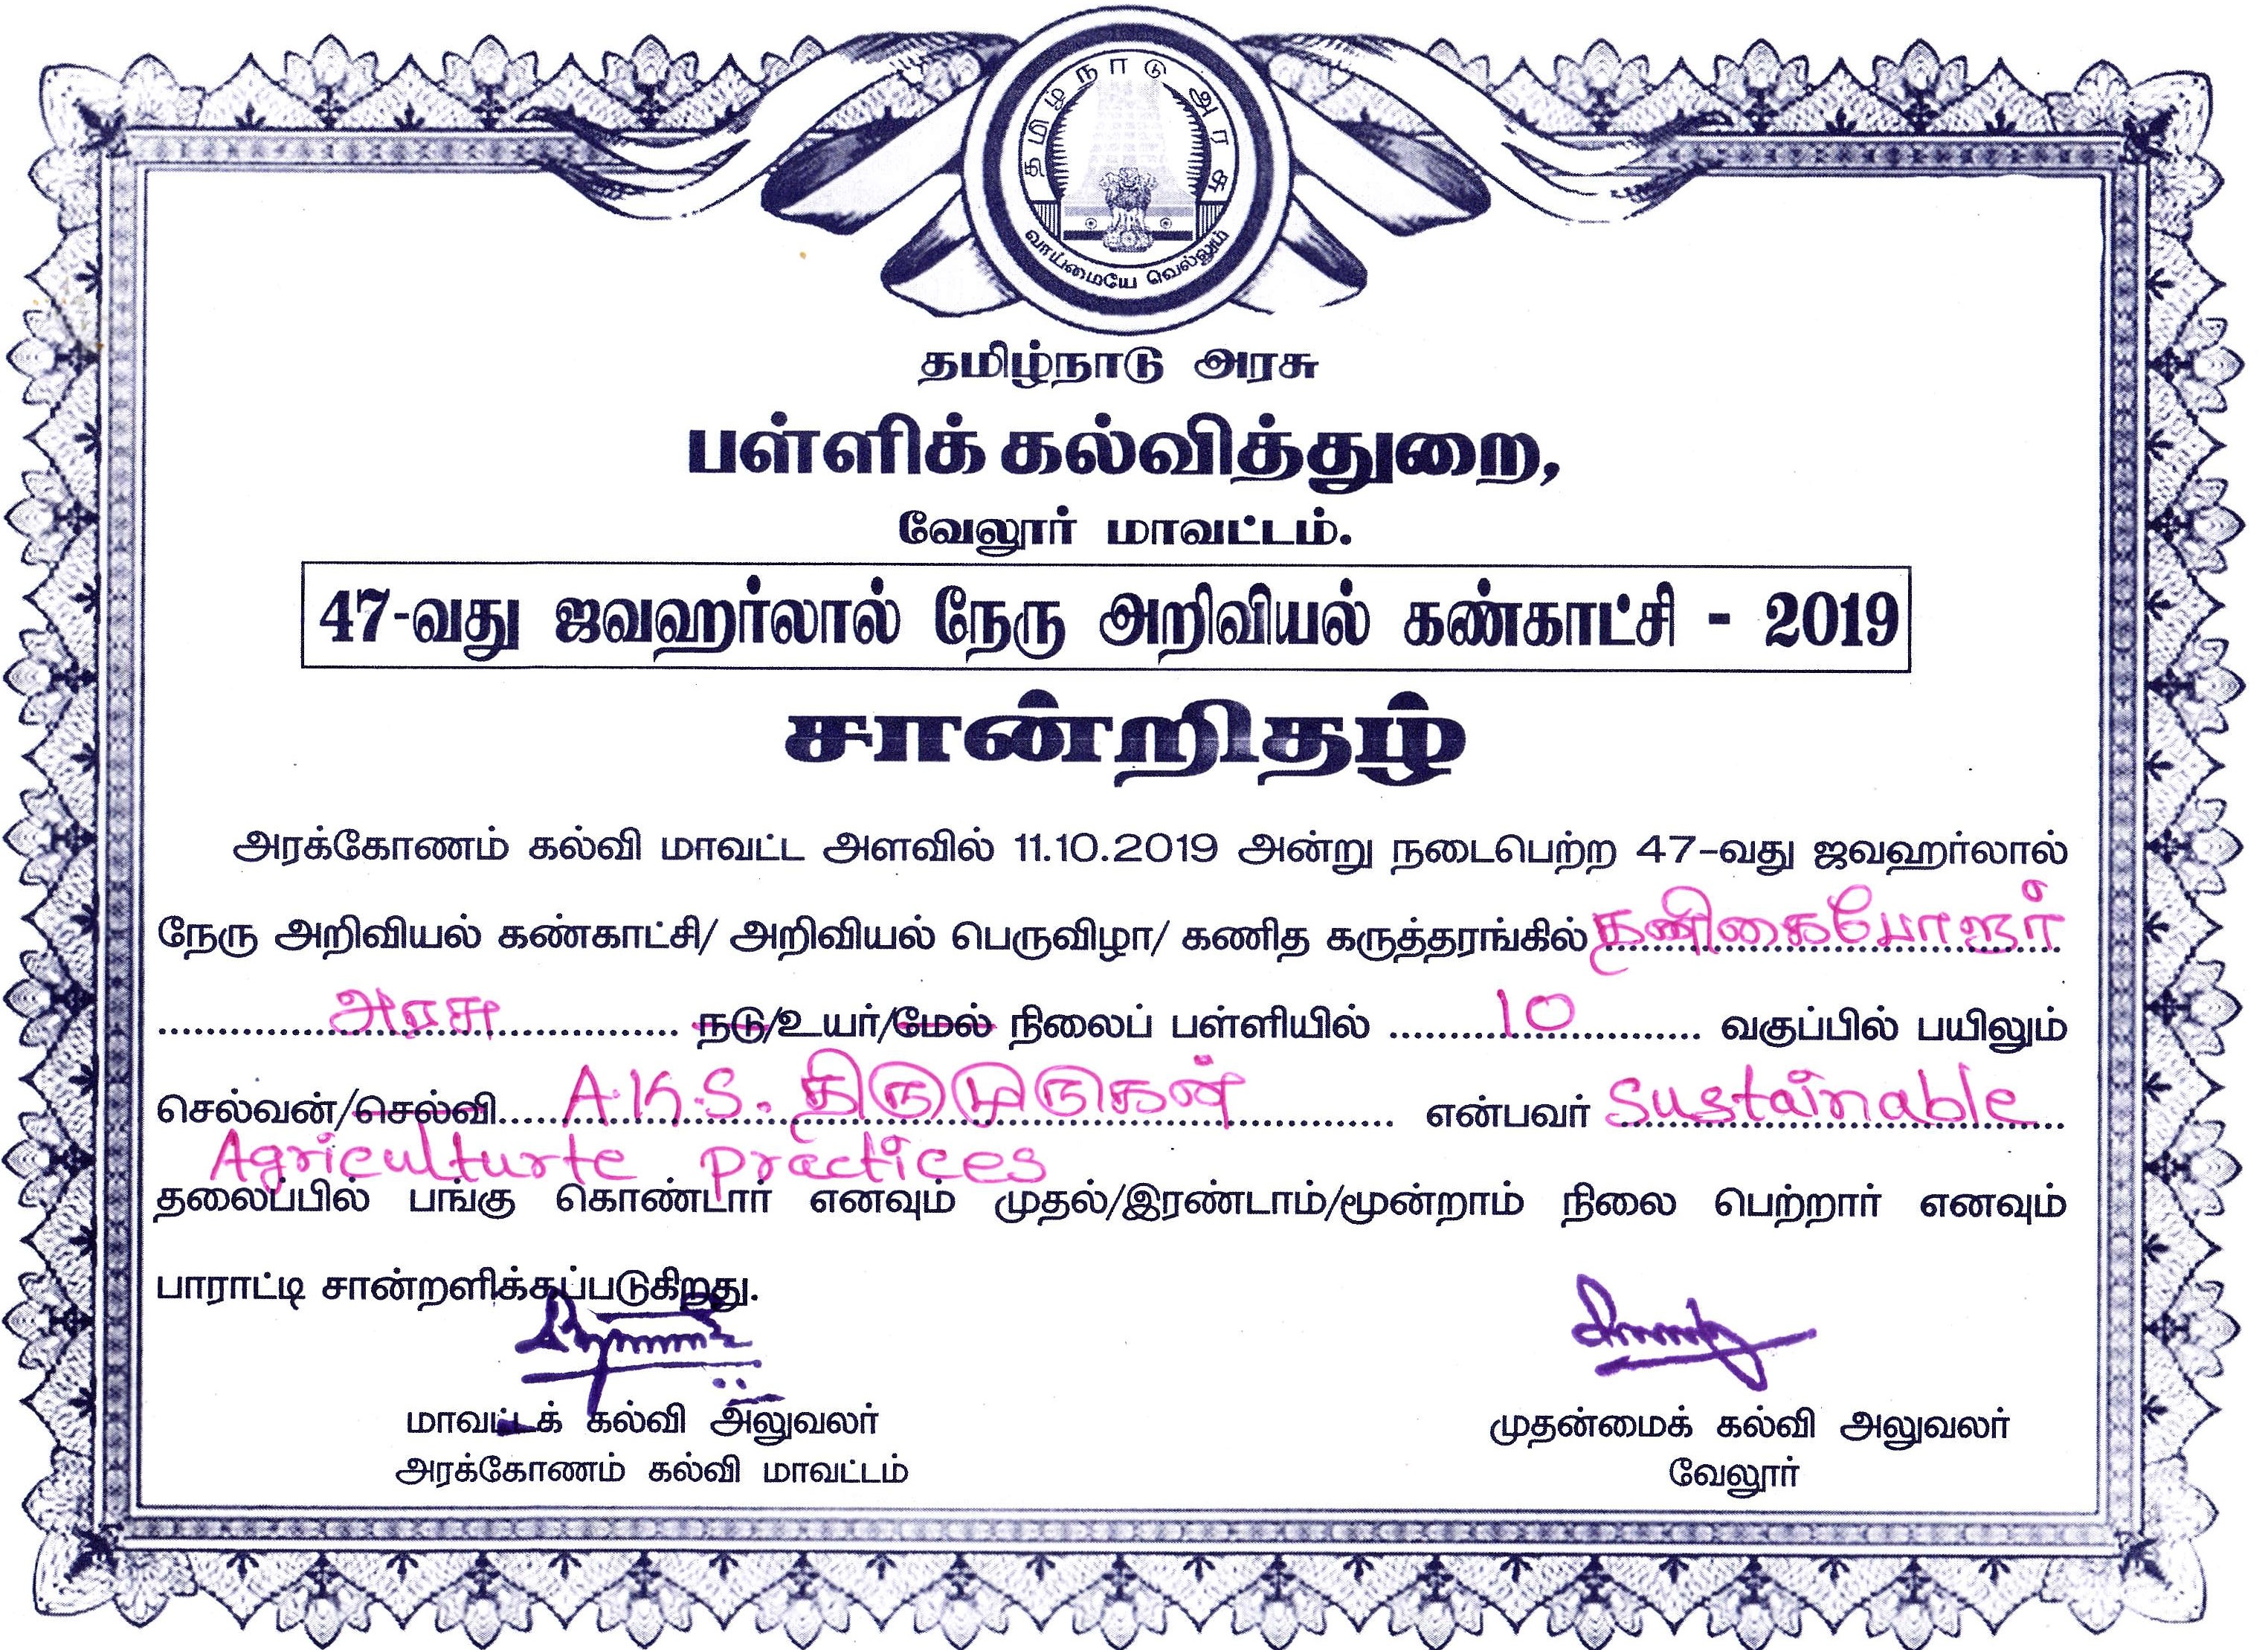 தமிழ்நாடு அரசு
வாய்மையே வெல்லும்
தமிழ்நாடு அரசு
பள்ளிக் கல்வித்துறை,
வேலூர் மாவட்டம்.
47-வது ஜவஹர்லால் நேரு அறிவியல் கண்காட்சி - 2019
சான்றிதழ்
அரக்கோணம் கல்வி மாவட்ட அளவில் 11.10.2019 அன்று நடைபெற்ற 47-வது ஜவஹர்லால்
நேரு அறிவியல் கண்காட்சி/ அறிவியல் பெருவிழா/ கணித கருத்தரங்கில் தணிகைபோளூர்
அரசு நடு/உயர்/மேல் நிலைப் பள்ளியில் 10 வகுப்பில் பயிலும்
செல்வன்/செல்வி A.K.S. திருமுருகன் என்பவர் Sustainable
Agriculturte practices
தலைப்பில் பங்கு கொண்டார் எனவும் முதல்/இரண்டாம்/மூன்றாம் நிலை பெற்றார் எனவும்
பாராட்டி சான்றளிக்கப்படுகிறது.
மாவட்டக் கல்வி அலுவலர்
அரக்கோணம் கல்வி மாவட்டம்
முதன்மைக் கல்வி அலுவலர்
வேலூர்